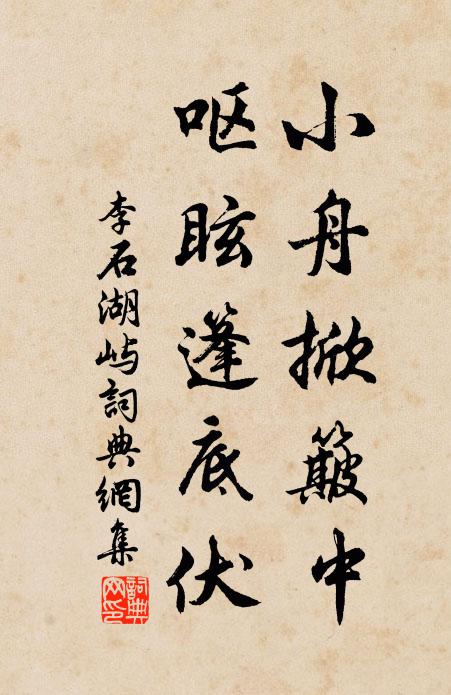 小舟掀簸中
呕眩篷底伏
李石湖屿詞典網集
詞典网印